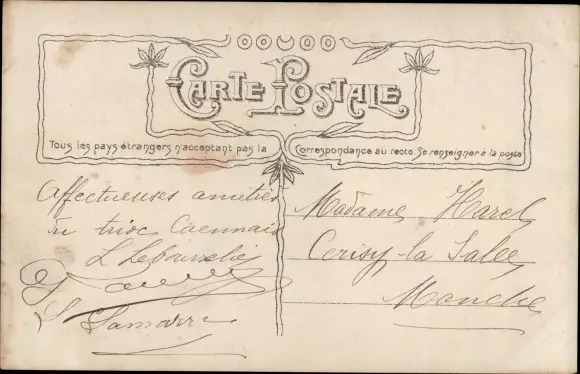 CARTE POSTALE
Tous les pays étrangers n'acceptant pas la Correspondance au recto. Se renseigner à la poste
Affectueuses amitiés
du trio Caennais
L
S Lamarre
Madame Harel
Cerisy la Salle
Manche